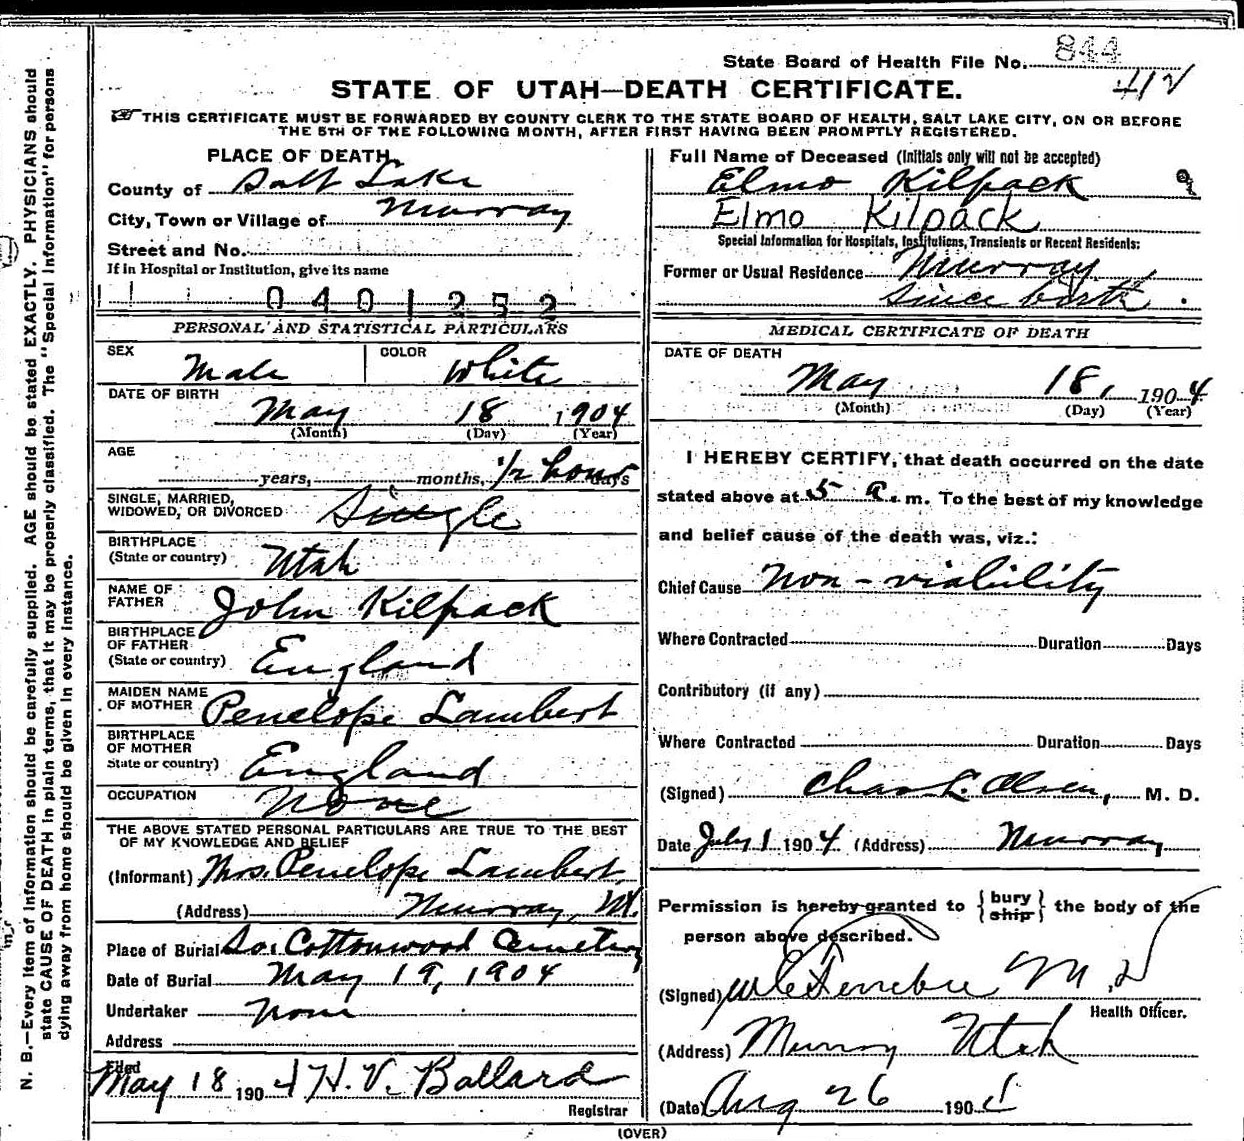 State Board of Health File No. 844
STATE OF UTAH—DEATH CERTIFICATE. 412
THIS CERTIFICATE MUST BE FORWARDED BY COUNTY CLERK TO THE STATE BOARD OF HEALTH, SALT LAKE CITY, ON OR BEFORE
THE 5TH OF THE FOLLOWING MONTH, AFTER FIRST HAVING BEEN PROMPTLY REGISTERED.
PLACE OF DEATH
County of Salt Lake
City, Town or Village of Murray
Street and No.
If in Hospital or Institution, give its name
0401252
PERSONAL AND STATISTICAL PARTICULARS
SEX Male COLOR White
DATE OF BIRTH
May 18 1904
(Month) (Day) (Year)
AGE
years, months, 1/2 hour days
SINGLE, MARRIED,
WIDOWED, OR DIVORCED Single
BIRTHPLACE
(State or country) Utah
NAME OF
FATHER John Kilpack
BIRTHPLACE
OF FATHER
(State or country) England
MAIDEN NAME
OF MOTHER Penelope Lambert
BIRTHPLACE
OF MOTHER
State or country) England
OCCUPATION None
THE ABOVE STATED PERSONAL PARTICULARS ARE TRUE TO THE BEST
OF MY KNOWLEDGE AND BELIEF
(Informant) Mrs. Penelope Lambert
(Address) Murray, Ut.
Place of Burial So. Cottonwood Cemetery
Date of Burial May 19, 1904
Undertaker None
Address
Filed
May 18 1904 H. V. Ballard
Registrar
Full Name of Deceased (Initials only will not be accepted)
Elmo Kilpack
Elmo Kilpack
Special Information for Hospitals, Institutions, Transients or Recent Residents:
Former or Usual Residence Murray
since birth.
MEDICAL CERTIFICATE OF DEATH
DATE OF DEATH
May 18, 1904
(Month) (Day) (Year)
I HEREBY CERTIFY, that death occurred on the date
stated above at 5 a. m. To the best of my knowledge
and belief cause of the death was, viz.:
Chief Cause Non-viability
Where Contracted Duration Days
Contributory (if any)
Where Contracted Duration Days
(Signed) Chas L. Olsen, M. D.
Date July 1 1904 (Address) Murray
Permission is hereby granted to { bury ship } the body of the
person above described.
(Signed) M.D
Health Officer.
(Address) Murray Utah
(Date) Aug 26 190
(OVER)
N. B.—Every item of information should be carefully supplied. AGE should be stated EXACTLY. PHYSICIANS should
state CAUSE OF DEATH in plain terms, that it may be properly classified. The "Special Information" for persons
dying away from home should be given in every instance.